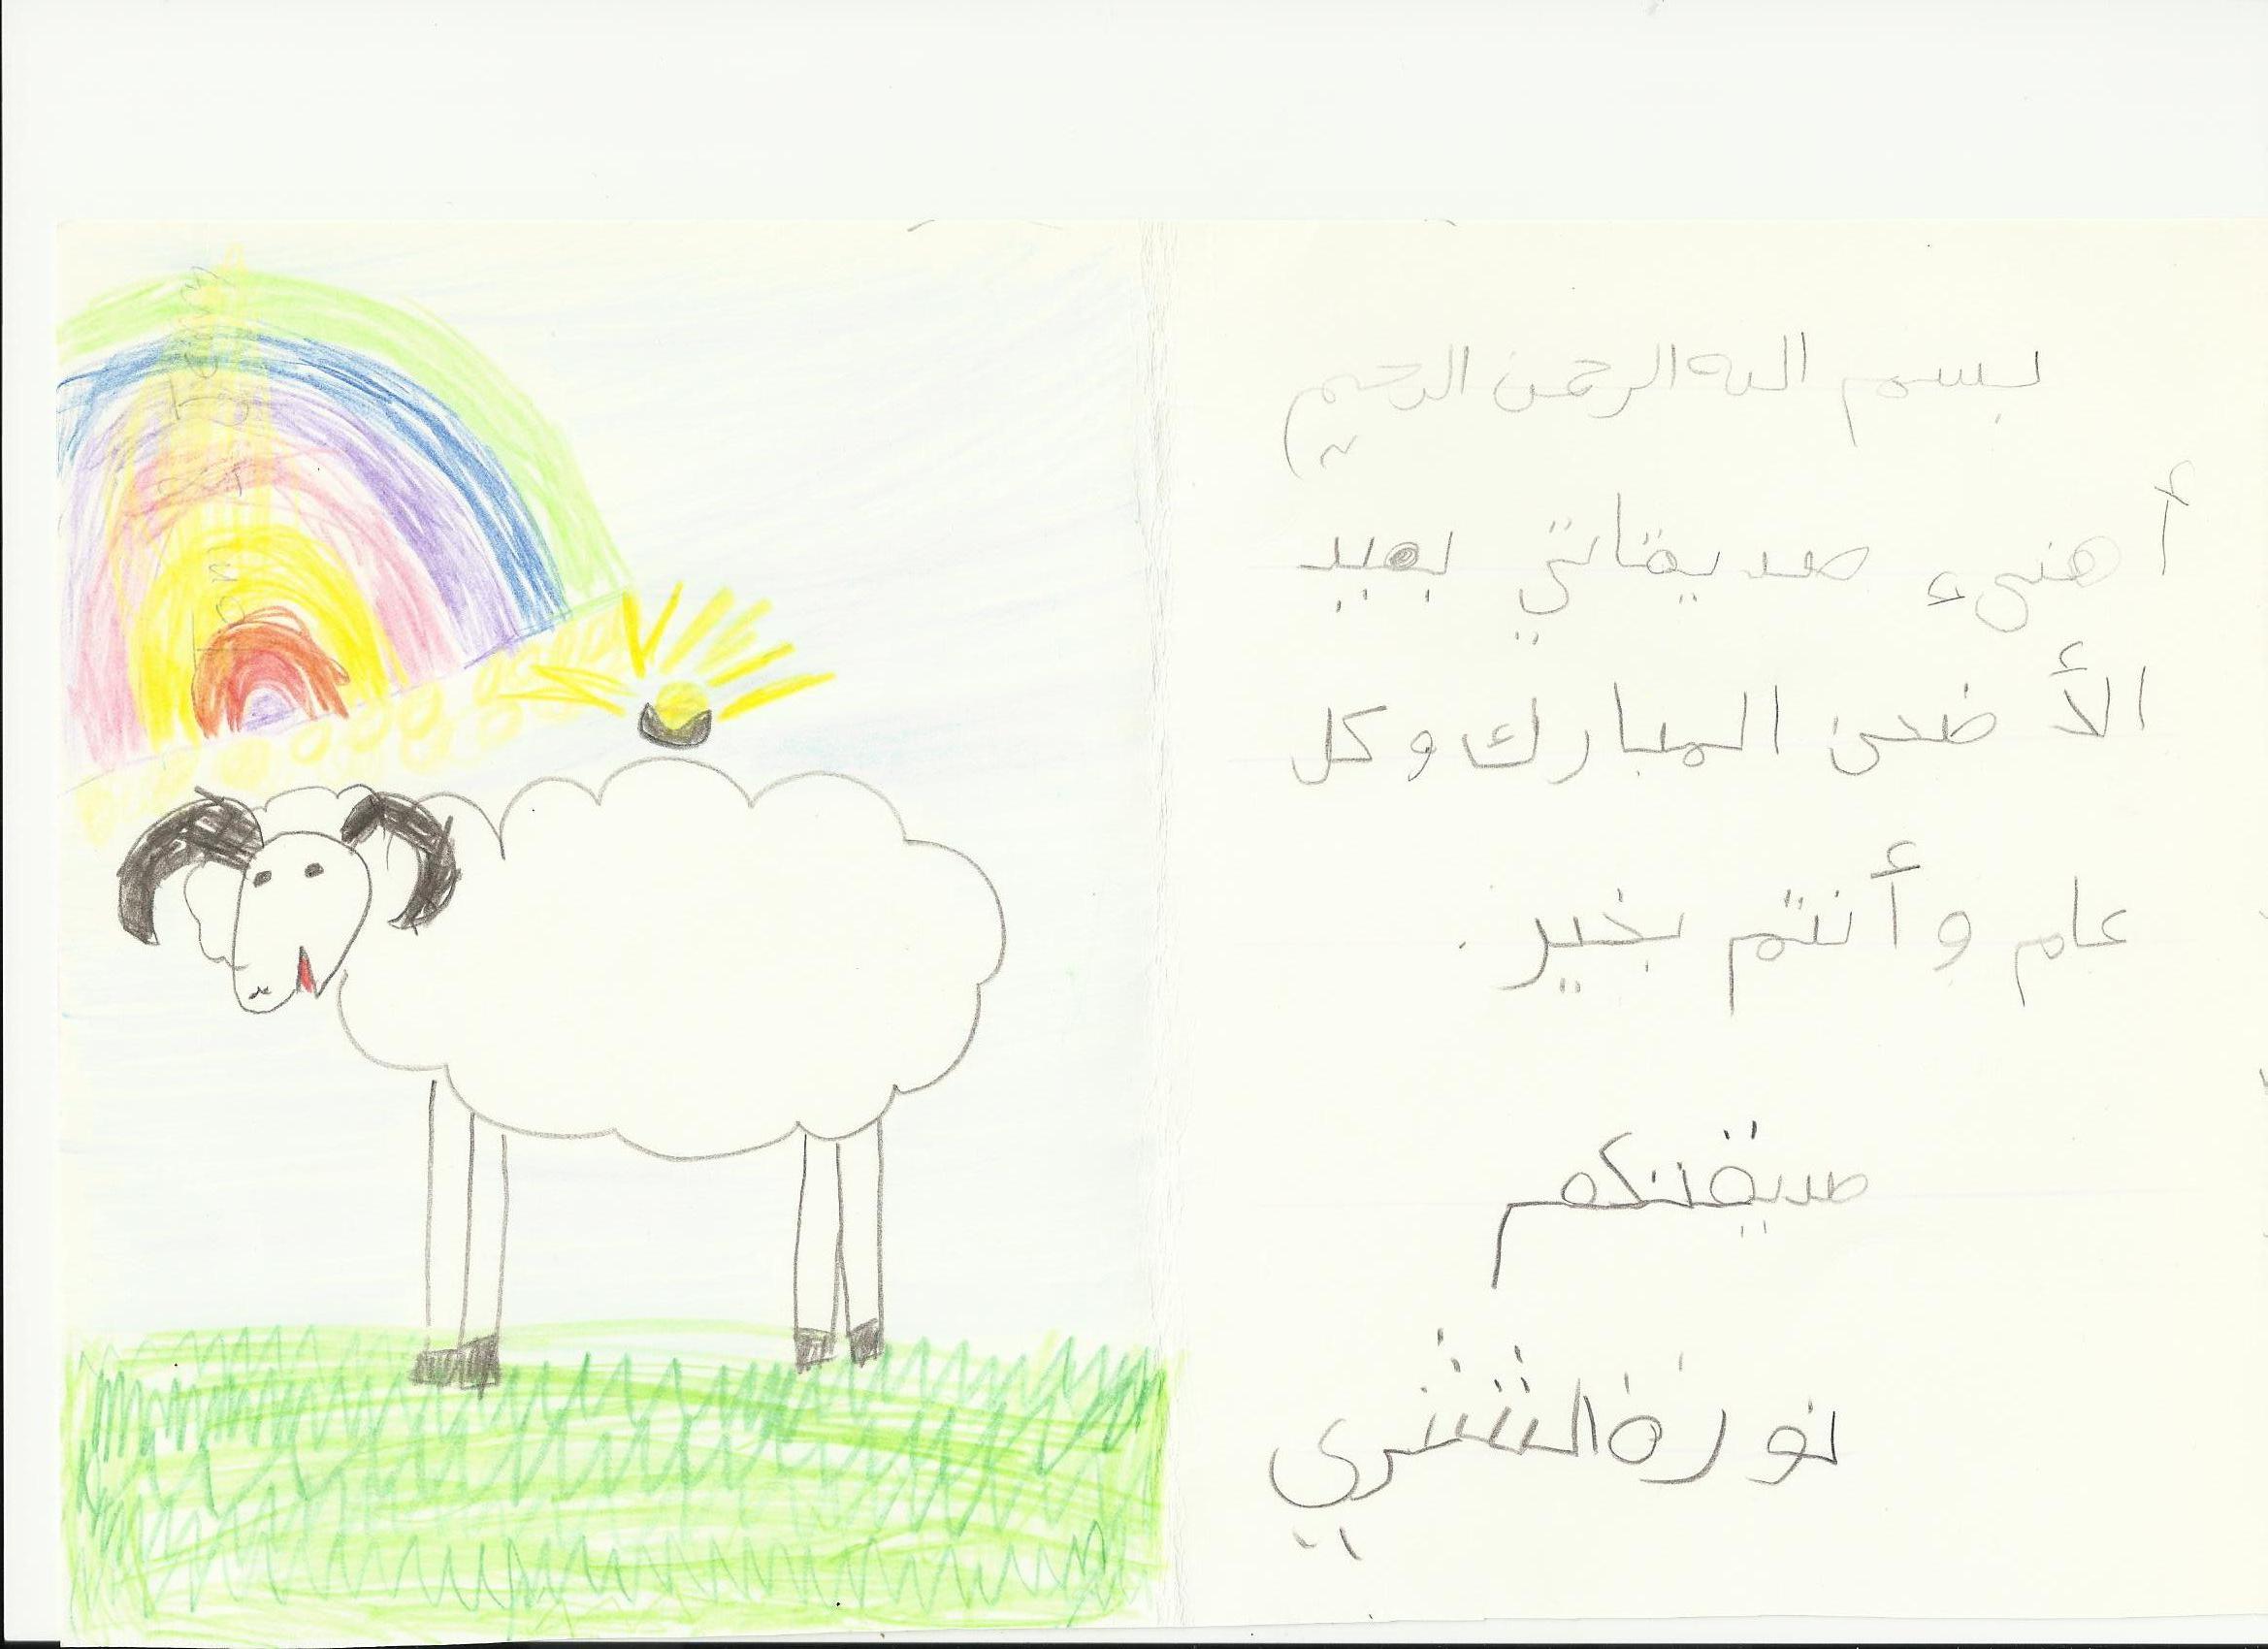 بسم الله الرحمن الرحيم
أهنيء صديقاتي بعيد
الأضحى المبارك وكل
عام وأنتم بخير.
صديقتكم
نورة الشثري